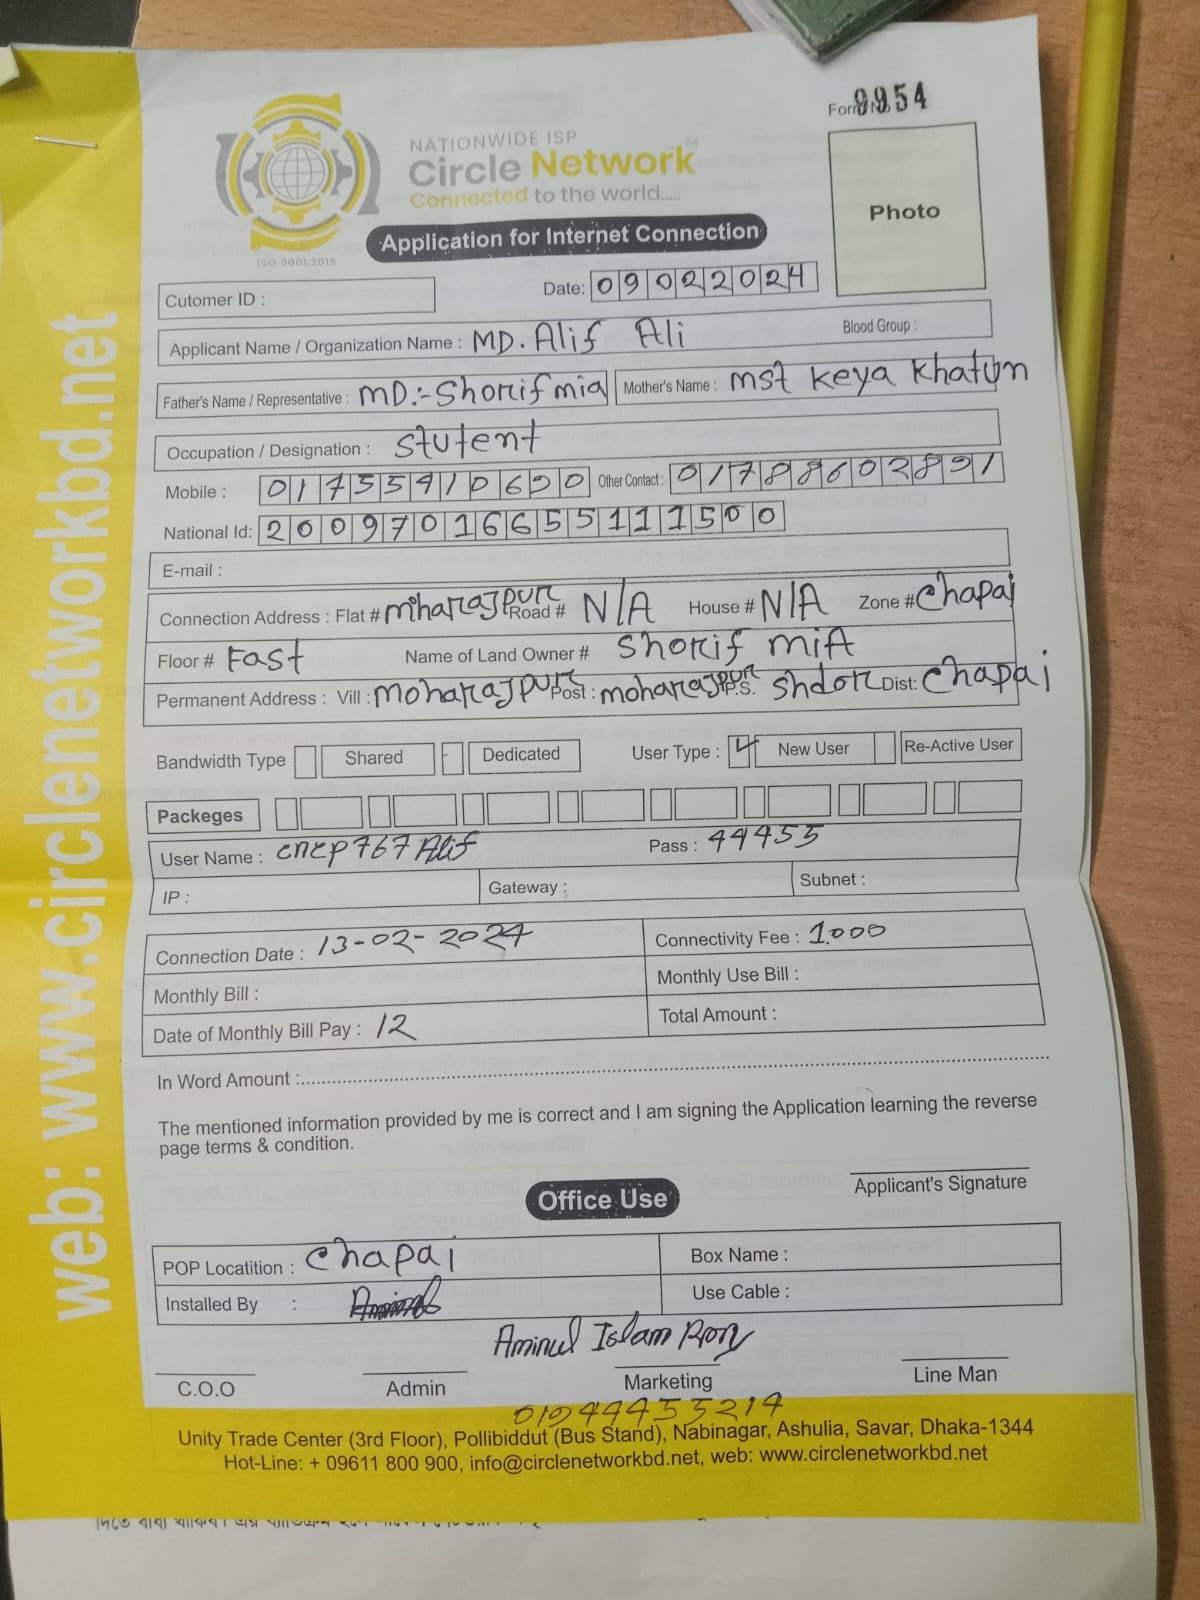 Form 9954
NATIONWIDE ISP
Circle Network
Connected to the world.....
ISO 9001:2015
Application for Internet Connection
Photo
Cutomer ID :
Date: 09022024
Applicant Name / Organization Name : MD. Alif Ali Blood Group :
Father's Name / Representative : MD:- Shorif mia Mother's Name : mst keya khatun
Occupation / Designation : Stutent
Mobile : Other Contact :
National Id: 20097016655111500
E-mail :
Connection Address : Flat # Road # N/A House # N/A Zone # Chapai
Floor # Fast Name of Land Owner # Shorif miA
Permanent Address : Vill : moharajpur Post : moharajpur P.S. Shdor Dist: Chapai
Bandwidth Type Shared Dedicated User Type : New User Re-Active User
Packeges
User Name : cncp767Alif Pass : 44455
IP : Gateway : Subnet :
Connection Date : 13-02-2024 Connectivity Fee : 1000
Monthly Bill : Monthly Use Bill :
Date of Monthly Bill Pay : 12 Total Amount :
In Word Amount :
The mentioned information provided by me is correct and I am signing the Application learning the reverse
page terms & condition.
Applicant's Signature
Office Use
POP Locatition : Chapai Box Name :
Installed By : Use Cable :
Aminul Islam Rony
C.O.O Admin Marketing Line Man
01944455214
Unity Trade Center (3rd Floor), Pollibiddut (Bus Stand), Nabinagar, Ashulia, Savar, Dhaka-1344
Hot-Line: + 09611 800 900, info@circlenetworkbd.net, web: www.circlenetworkbd.net
web: www.circlenetworkbd.net